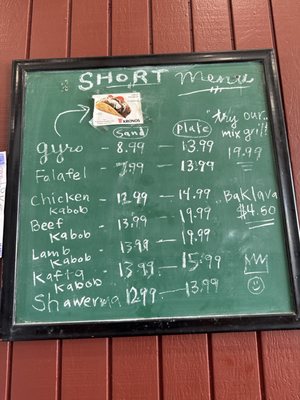 SHORT Menu
KRONOS
Sand Plate
gyro - 8.99 - 13.99
Falafel - 7.99 - 13.99
Chicken Kabob - 12.99 - 14.99
Beef Kabob - 13.99 - 19.99
Lamb Kabob - 13.99 - 19.99
Kafta Kabob - 13.99 - 15.99
Shawerma 12.99 - 13.99
"try our mix grill"
19.99
Baklava
$4.50